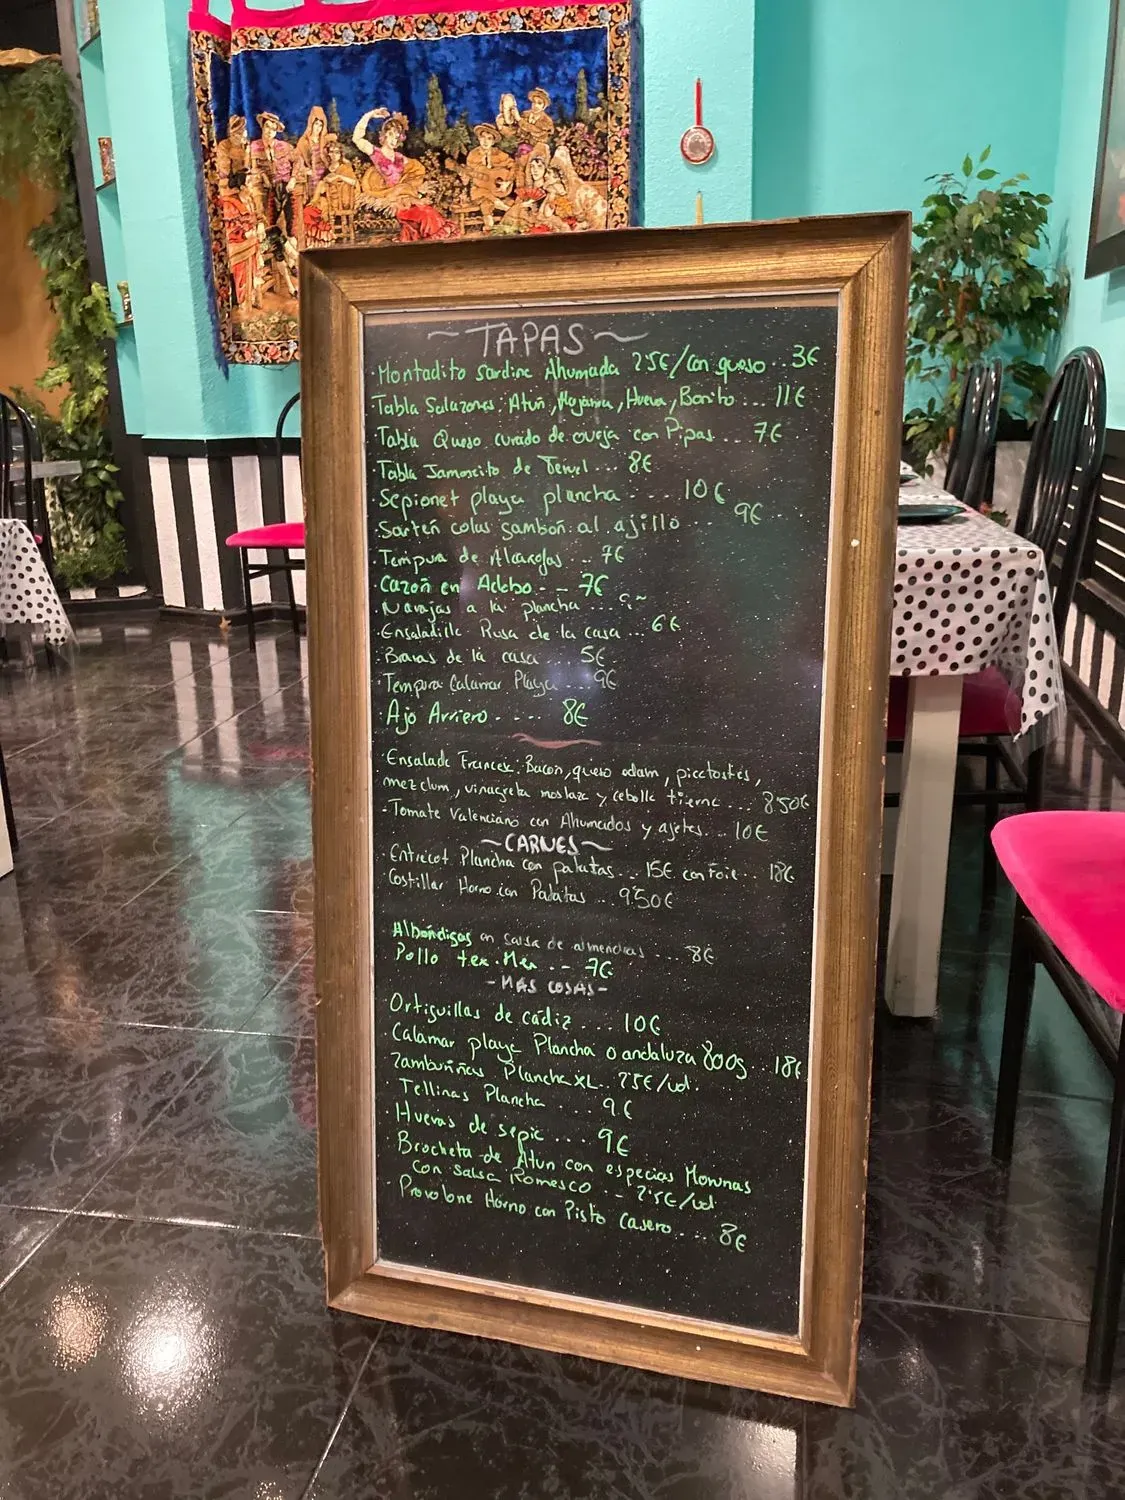 ~TAPAS~
·Montadito Sardina Ahumada 2'5€/Con queso... 3€
·Tabla Salazones: Atún, Mojama, Hueva, Bonito... 11€
·Tabla Queso curado de oveja con Pipas... 7€
·Tabla Jamoncito de Teruel... 8€
·Sepionet playa plancha.... 10€
·Sartén colas gambon al ajillo... 9€
·Tempura de Alcachofas... 7€
·Cazón en Adobo.-- 7€
·Navajas a la plancha...
·Ensaladilla Rusa de la casa... 6€
·Bravas de la casa... 5€
·Tempura Calamar Playa... 9€
·Ajo Arriero..... 8€
·Ensalada Francesa: Bacon, queso edam, picatostes,
mezclum, vinagreta mostaza y cebolla tierna... 8'50€
·Tomate Valenciano con Ahumados y ajetes... 10€
~CARNES~
·Entrecot Plancha con patatas... 15€ con Foie.. 18€
·Costillar Horno con Patatas... 9'50€
·Albóndigas en salsa de almendras... 8€
Pollo tex-Mex.-- 7€
-MAS COSAS-
Ortiguillas de cádiz.... 10€
Calamar playa Plancha o andaluza 800g. 18€
Zamburiñas Plancha XL.. 2'5€/ud.
·Tellinas Plancha... 9€
·Huevas de sepia... 9€
·Brocheta de Atun con especias Morunas
con Salsa Romesco.-- 2'5€/ud.
·Provolone Horno con Pisto Casero.... 8€